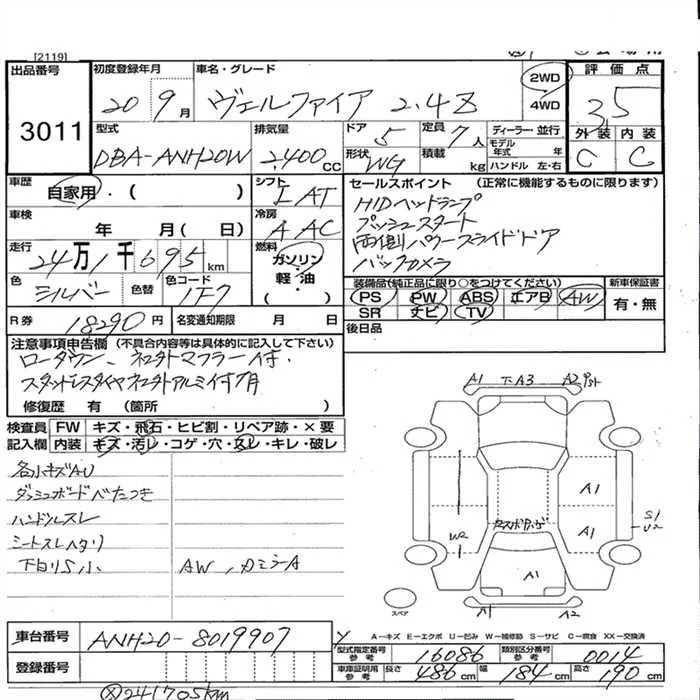 [2119]
出品番号 初度登録年月 車名・グレード 2WD 4WD 評価点
3011 20 9月 ヴェルファイア 2.4Z 3.5
型式 排気量 ドア 定員 ディーラー・並行 外装 内装
DBA-ANH20W 2,400CC 5 7人 モデル年式 年 C C
形状 WG 積載 kg ハンドル 左・右
車歴 自家用・( ) シフト IAT セールスポイント (正常に機能するものに限ります)
車検 年 月( 日) 冷房 AAC HIDヘッドランプ
プッシュスタート
走行 24万1千695km 燃料 ガソリン・軽油・( ) 両側パワースライドドア
バックカメラ
色 シルバー 色替 色コード 1F7 装備品(純正品に限り○をつけてください) 新車保証書
PS PW ABS エアB AW 有・無
SR ナビ TV
R券 18290円 名変通知期限 月 日 後日品
注意事項申告欄 (不具合内容等は具体的に記入して下さい)
ローダウン、社外マフラー付、
スタッドレスタイヤ社外アルミ付
修復歴 有 (箇所 )
検査員記入欄 FW キズ・飛石・ヒビ割・リペア跡・×要
内装 キズ・汚レ・コゲ・穴・スレ・キレ・破レ
各小キズAU
ダッシュボードベタつき
ハンドルスレ
シートスレヘタリ
下回りS小 AW、カミラーA
A1 下A3 A2
A1
W2 A1 S1
U2
A1
スペア A1 A2
A－キズ E－エクボ U－凹み W－補修跡 S－サビ C－腐食 XX－交換済
車台番号 ANH20-8019907 型式指定番号参考 16086 類別区分番号参考 0014
登録番号 車庫証明用参考 長さ 486cm 幅 184cm 高さ 190cm
241705km